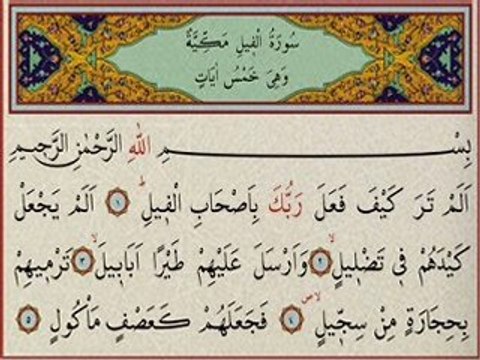 سُورَةُ الْفِيلِ مَكِّيَّةٌ
وَهِيَ خَمْسُ اٰيَاتٍ
بِسْمِ اللّٰهِ الرَّحْمٰنِ الرَّحِيمِ
اَلَمْ تَرَ كَيْفَ فَعَلَ رَبُّكَ بِاَصْحَابِ الْفِيلِۜ ﴿١﴾ اَلَمْ يَجْعَلْ
كَيْدَهُمْ فِي تَضْلِيلٍۙ ﴿٢﴾ وَاَرْسَلَ عَلَيْهِمْ طَيْرًا اَبَابِيلَۙ ﴿٣﴾ تَرْمِيهِمْ
بِحِجَارَةٍ مِنْ سِجِّيلٍۙۖ ﴿٤﴾ فَجَعَلَهُمْ كَعَصْفٍ مَأْكُولٍ ﴿٥﴾